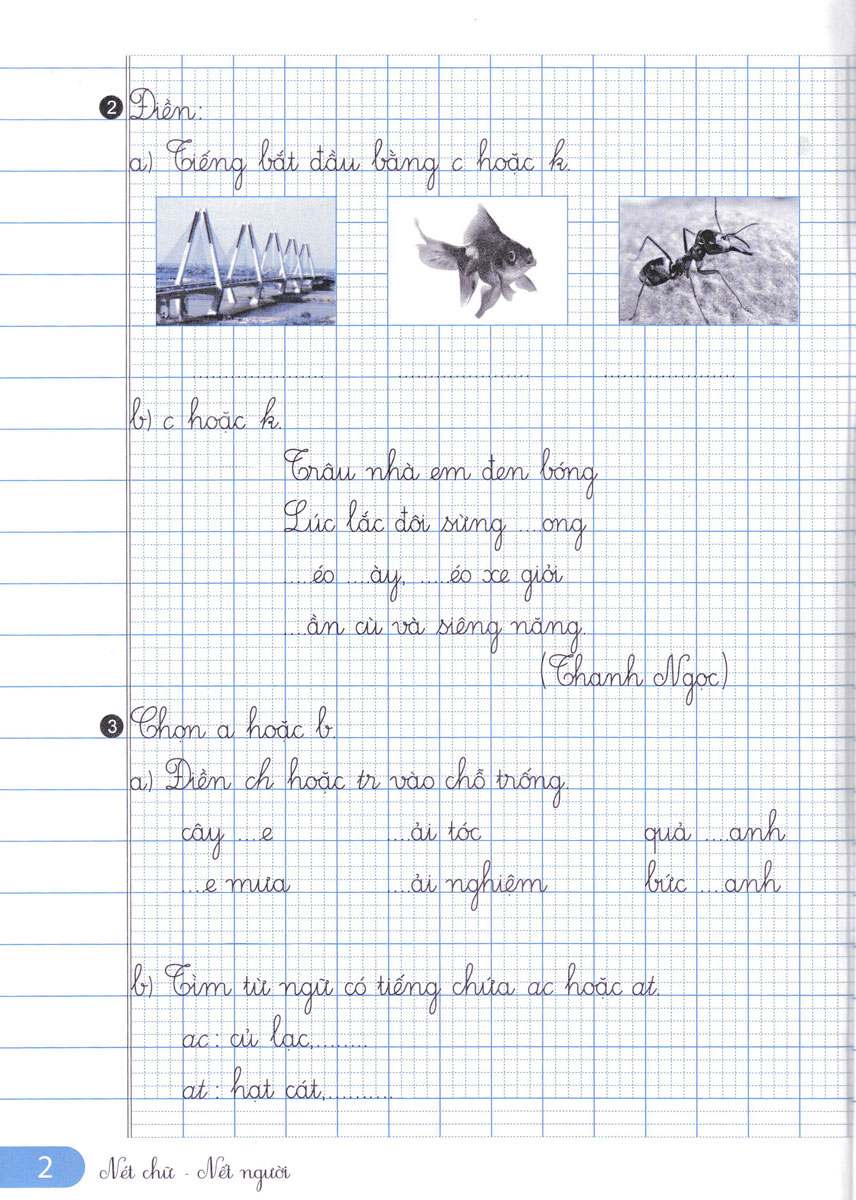 2 Điền:
a) Tiếng bắt đầu bằng c hoặc k.
.................... .................... ....................
b) c hoặc k.
Trâu nhà em đen bóng
Lúc lắc đôi sừng ....ong
....éo ....ày, .....éo xe giỏi
....ần cù và siêng năng.
(Thanh Ngọc)
3 Chọn a hoặc b.
a) Điền ch hoặc tr vào chỗ trống.
cây ....e ....ải tóc quả ....anh
....e mưa ....ải nghiệm bức ....anh
b) Tìm từ ngữ có tiếng chứa ac hoặc at.
ac : củ lạc,........
at : hạt cát,..........
2 Nét chữ - Nết người